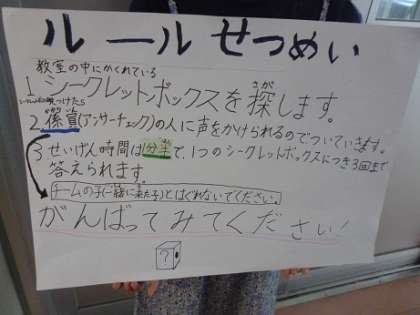 ルールせつめい
教室の中にかくれている
1.シークレットボックスを探します。
さが
2.係員(アンサーチェック)の人に声をかけられるのでついていきます。
3.せいげん時間は分までで、1つのシークレットボックスにつき3回まで
答えられます。
チームの子(一緒に来た子)とはぐれないでください。
がんばってみてください!
?